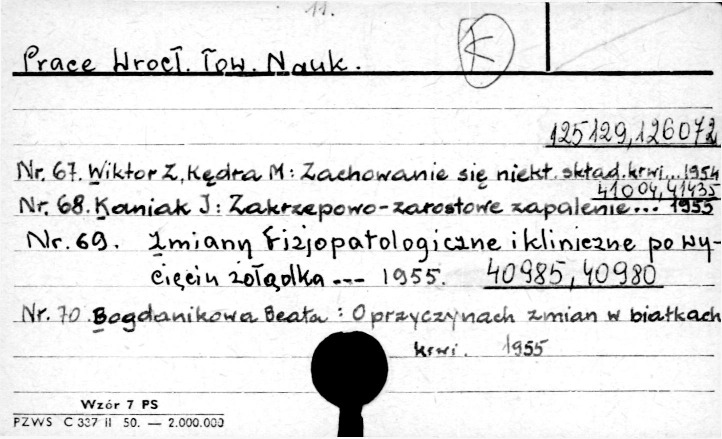 11.
Prace Wrocł. Tow. Nauk.
F
125129, 126072
Nr. 67. Wiktor Z, Kędra M: Zachowanie się niekt. skład. krwi... 1954
41004, 41435
Nr. 68. Kaniak J: Zakrzepowo-zarostowe zapalenie... 1955
Nr. 69. Zmiany fizjopatologiczne i kliniczne po wy-
cięciu żołądka --- 1955. 40985, 40980
Nr. 70 Bogdanikowa Beata: O przyczynach zmian w białkach
krwi. 1955
Wzór 7 PS
PZWS C 337 II 50. — 2.000.000